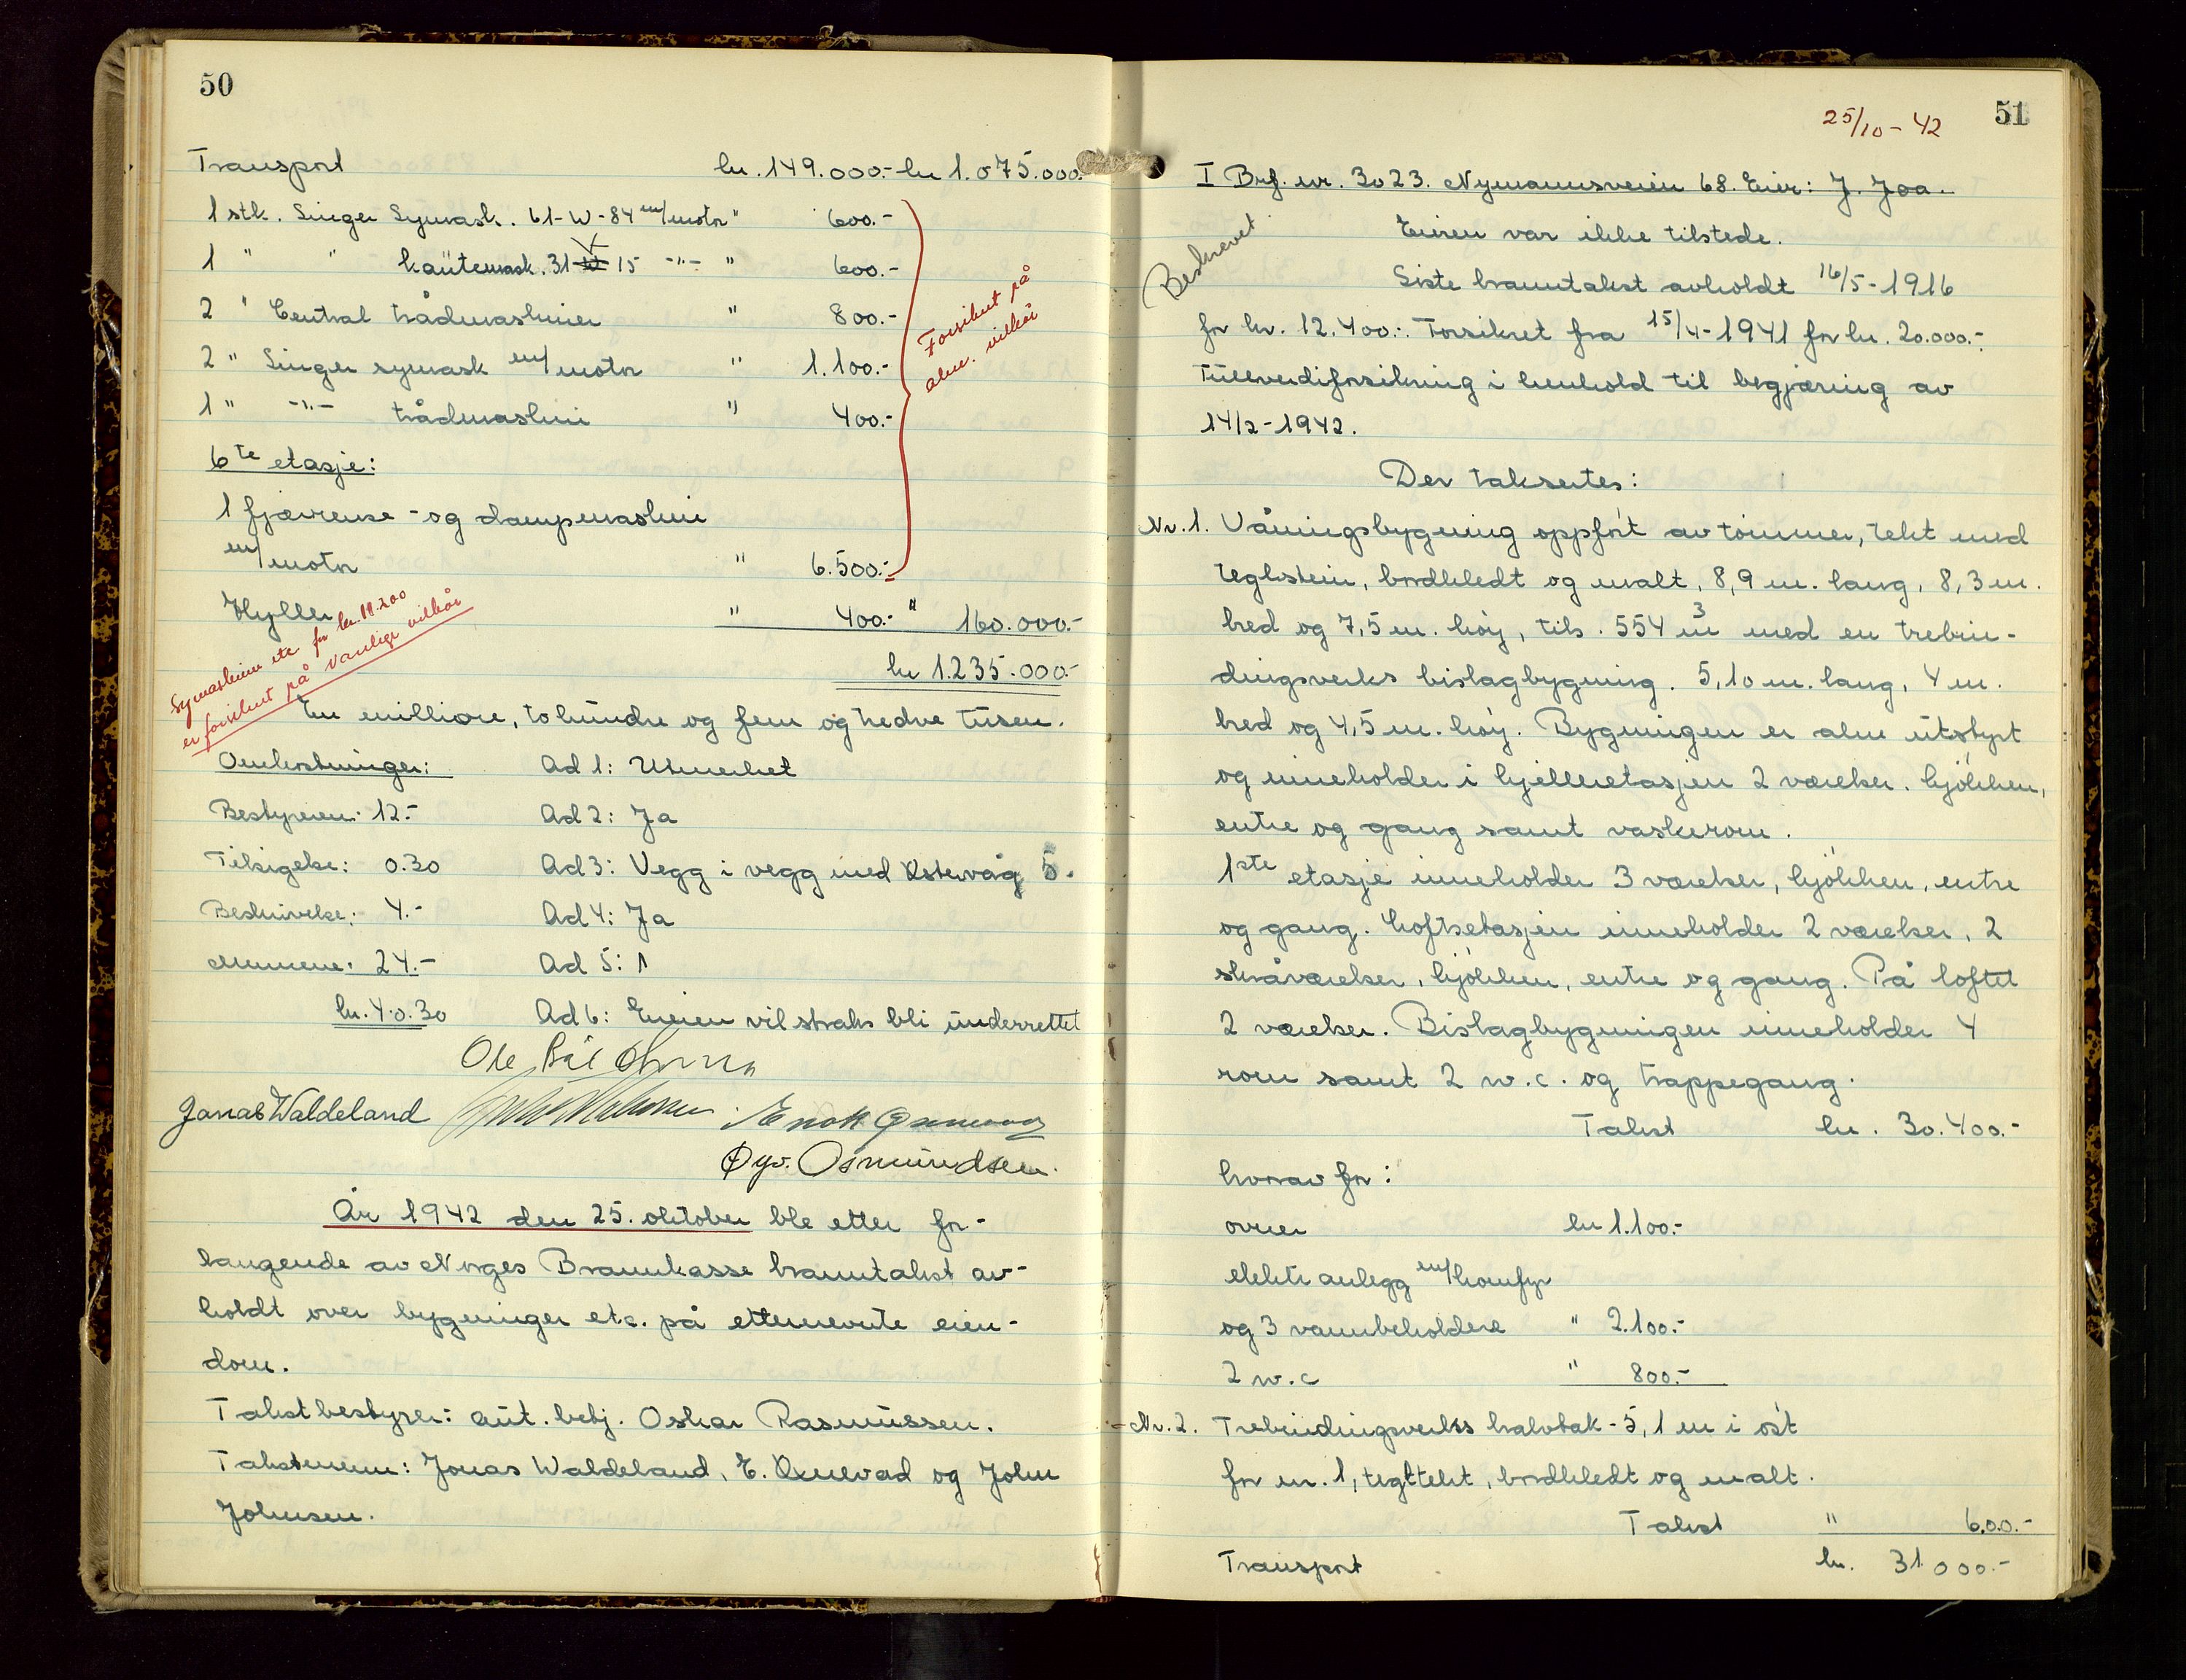 50
Transport kr. 149.000.- kr 1.075.000.-
1 stk. Singer Symask. 61-W-84 m/motor " 600.-
1 " " kantemask. 31-15 -"- " 600.-
2 " Central trådmaskiner " 800.-
2 " Singer symask m/motor " 1.100.-
1 " -"- trådmaskin " 400.-
Forsikret på
alm. vilkår
6te etasje:
1 fjærrense- og dampemaskin
m/motor " 6.500.-
Hyller " 400.- " 160.000.-
kr 1.235.000.-
Symaskiner etc for kr. 11.200
er forsikret på vanlige vilkår
En millione, tohundre og fem og tredve tusen.
Omkostninger: Ad 1: Utmerket
Bestyreren: 12.- Ad 2: Ja
Tilsigelse: 0.30 Ad 3: Vegg i vegg med Østervåg 5.
Beskrivelse: 4.- Ad 4: Ja
Mennene: 24.- Ad 5: 1
kr. 40.30 Ad 6: Eieren vil straks bli underrettet
Jonas Waldeland
Øyv. Osmundsen.
År 1942 den 25. oktober ble etter for-
langende av Norges Brannkasse branntakst av-
holdt over bygninger etc. på etternevnte eien-
dom.
Takstbestyrer: aut. betj. Oskar Rasmussen.
Takstmenn: Jonas Waldeland, E. Qvulvad og John
Johnsen.
25/10-42 51
I Brf. nr. 3023. Nymannsveien 68. Eier: J. Joa.
Beskrevet
Eieren var ikke tilstede.
Siste branntakst avholdt 16/5-1916
for kr. 12.400.-. Forsikret fra 15/4-1941 for kr. 20.000.-.
Fullverdiforsikring i henhold til begjæring av
14/2-1942.
Der takseres:
Nr. 1. Våningsbygning oppført av tømmer, tekt med
teglstein, bordkledt og malt, 8,9 m. lang, 8,3 m.
bred og 7,5 m. høy, tils. 554 m3 med en trebin-
dingsverks bislagbygning. 5,10 m. lang, 4 m.
bred og 4,5 m. høy. Bygningen er alm utstyrt
og inneholder i kjelleretasjen 2 værelser. kjøkken,
entre og gang samt vaskerom.
1ste etasje inneholder 3 værelser, kjøkken, entre
og gang. Loftsetasjen inneholder 2 værelser, 2
skråværelser, kjøkken, entre og gang. På loftet
2 værelser. Bislagbygningen inneholder 4
rom samt 2 w.c. og trappegang.
Takst kr. 30.400.-
hvorav for:
ovner kr 1.100.-
elektr anlegg m/komfyr
og 3 vannbeholdere " 2.100.-
2 w.c " 800.-
Nr. 2. Trebindingsverks halvtak - 5,1 m i øst
for nr. 1, tegltekt, bordkledt og malt.
Takst " 600.-
Transport kr. 31000.-